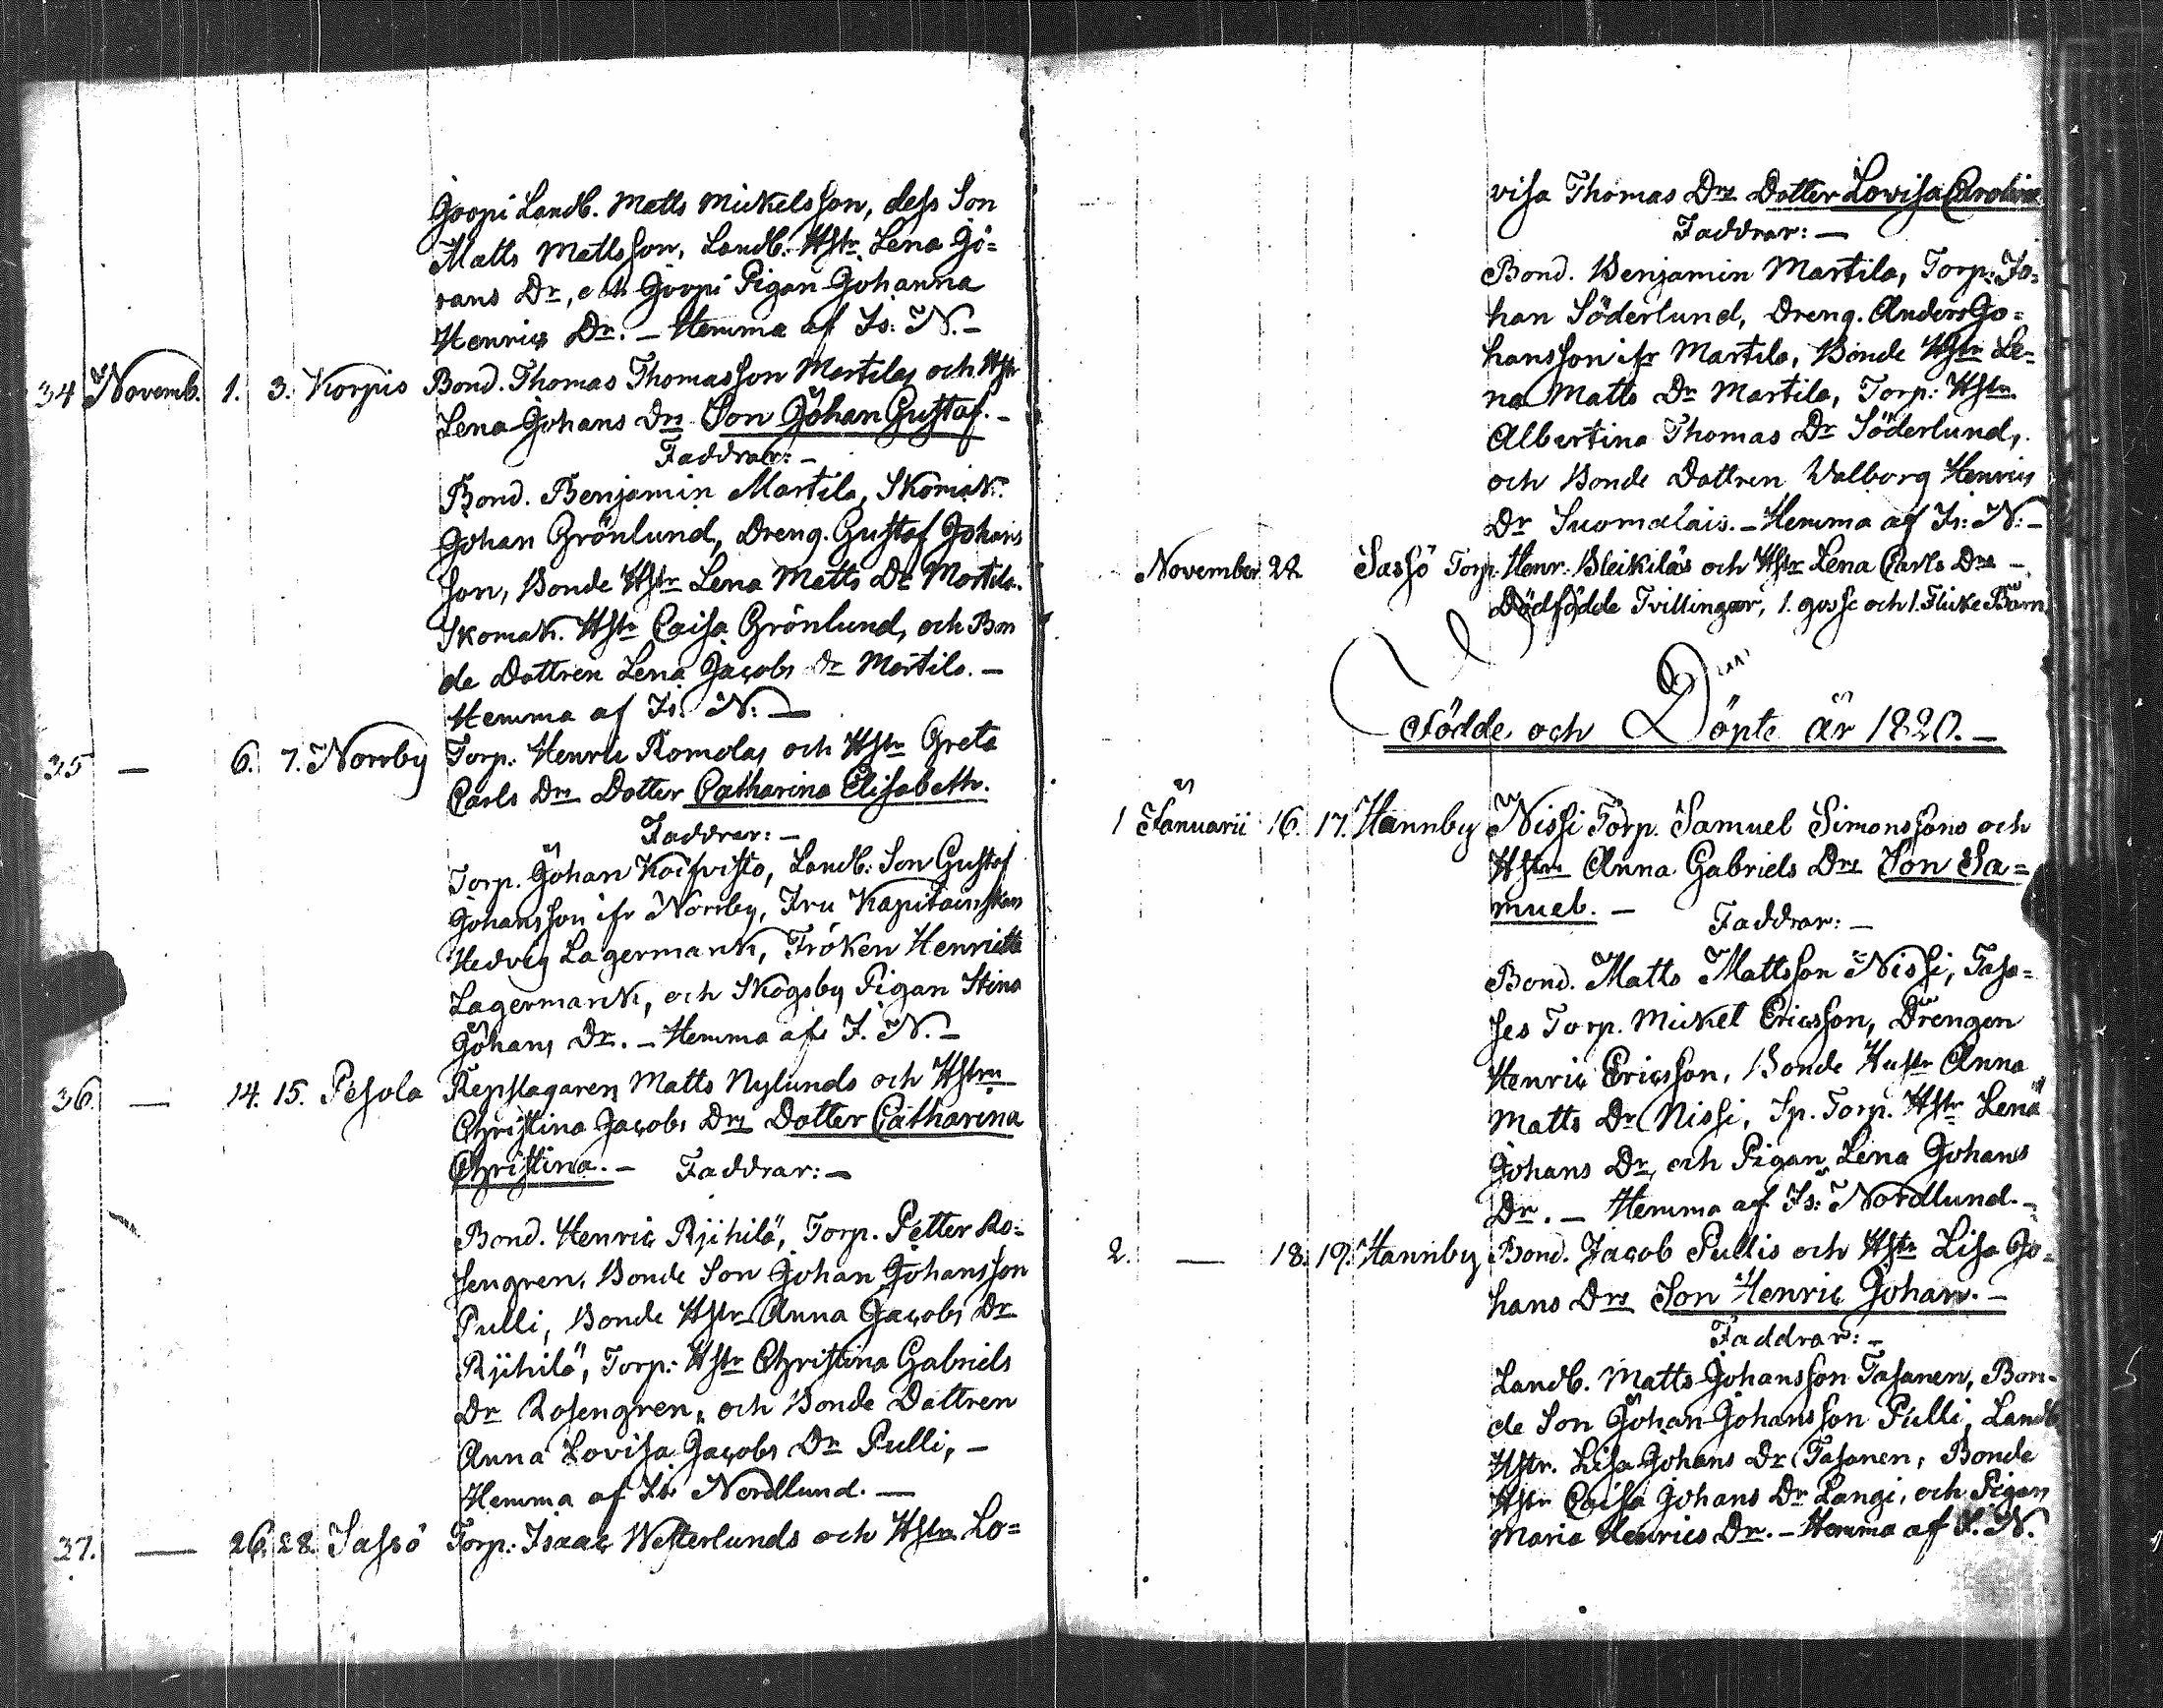 Joopi Landb. Matts Mickelsson, dess Son
Matts Mattsson, Landb. Hstr Lena Gö=
rans Dr, och Joopi Pigan Johanna
Henrics Dr. – Hemma af Is: N. –
34 Novemb. 1. 3. Korpis Bond. Thomas Thomasson Martilas och Hstr
Lena Johans Drs Son Johan Gustaf. –
Faddrar: –
Bond. Benjamin Martila, Skomak.
Johan Grönlund, Dreng. Gustaf Johans
son, Bonde Hstr Lena Matts Dr Martila.
Skomak. Hstr Caisa Grönlund, och Bon
de Dottren Lena Jacobs Dr Martila. –
Hemma af Is: N: —
35 — 6. 7. Norrby Torp. Henric Romolas och Hstr Greta
Carls Drs Dotter Catharina Elisabeth.
Faddrar: –
Torp. Johan Koifvisto, Landb: Son Gustaf
Johansson ifr Norrby, Fru Kapitainskan
Hedvig Lagermarck, Fröken Henrietta
Lagermarck, och Skogsby Pigan Stina
Johans Dr. – Hemma af I. N. –
36. — 14. 15. Pesola Repslagaren Matts Nylunds och Hstrs
Christina Jacobs Drs Dotter Catharina
Christina. – Faddrar: –
Bond. Henric Rjihilä, Torp. Petter Ro=
sengren, Bonde Son Johan Johansson
Pulli, Bonde Hstr Anna Jacobs Dr
Rjihilä, Torp: Hstr Christina Gabriels
Dr Rosengren, och Bonde Dottren
Anna Lovisa Jacobs Dr Pulli, –
Hemma af Is: Nordlund. —
37. — 26. 28. Sassö Torp: Isaac Westerlunds och Hstrs Lo=
visa Thomas Drs Dotter Lovisa Carolina
Faddrar: —
Bond. Benjamin Martila, Torp: Jo=
han Söderlund, Dreng. Anders Jo=
hansson ifr Martila, Bonde Hstr Le=
na Matts Dr Martila, Torp: Hstr
Albertina Thomas Dr Söderlund,
och Bonde Dottren Valborg Henrics
Dr Suomalais. – Hemma af Is: N: –
November 22 Sassö Torp. Henr: Bleikiläs och Hstr Lena Carls Drs –
Dödfödde Tvillingar, 1. gosse och 1. Flicke Barn
Födde och Döpte år 1820. –
1 Januarii 16. 17. Hannby Nissi Torp. Samuel Simonssons och
Hstrs Anna Gabriels Drs Son Sa=
muel. – Faddrar: –
Bond. Matts Mattsson Nissi, Tasa=
ses Torp. Mickel Ericsson, Drengen
Henric Ericsson, Bonde Hustr Anna
Matts Dr Nissi, Sp. Torp. Hstr Lena
Johans Dr, och Pigan Lena Johans
Dr. – Hemma af Is: Nordlund. –
2. — 18. 19. Hannby Bond. Jacob Pullis och Hstr Lisa Jo=
hans Drs Son Henric Johan. –
Faddrar: –
Landb. Matts Johansson Tasanen, Bon=
de Son Johan Johansson Pulli, Landb
Hstr. Lisa Johans Dr Tasanen, Bonde
Hstr Caisa Johans Dr Langi, och Pigan
Maria Henrics Dr. – Hemma af I. N.